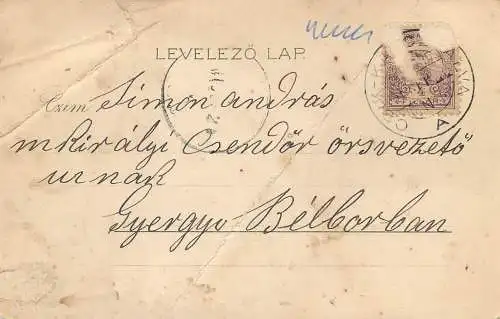 LEVELEZŐ LAP.
Czím Simon andrás
m királyi Csendőr örsvezető
urnak
Gyergyo Bélborban